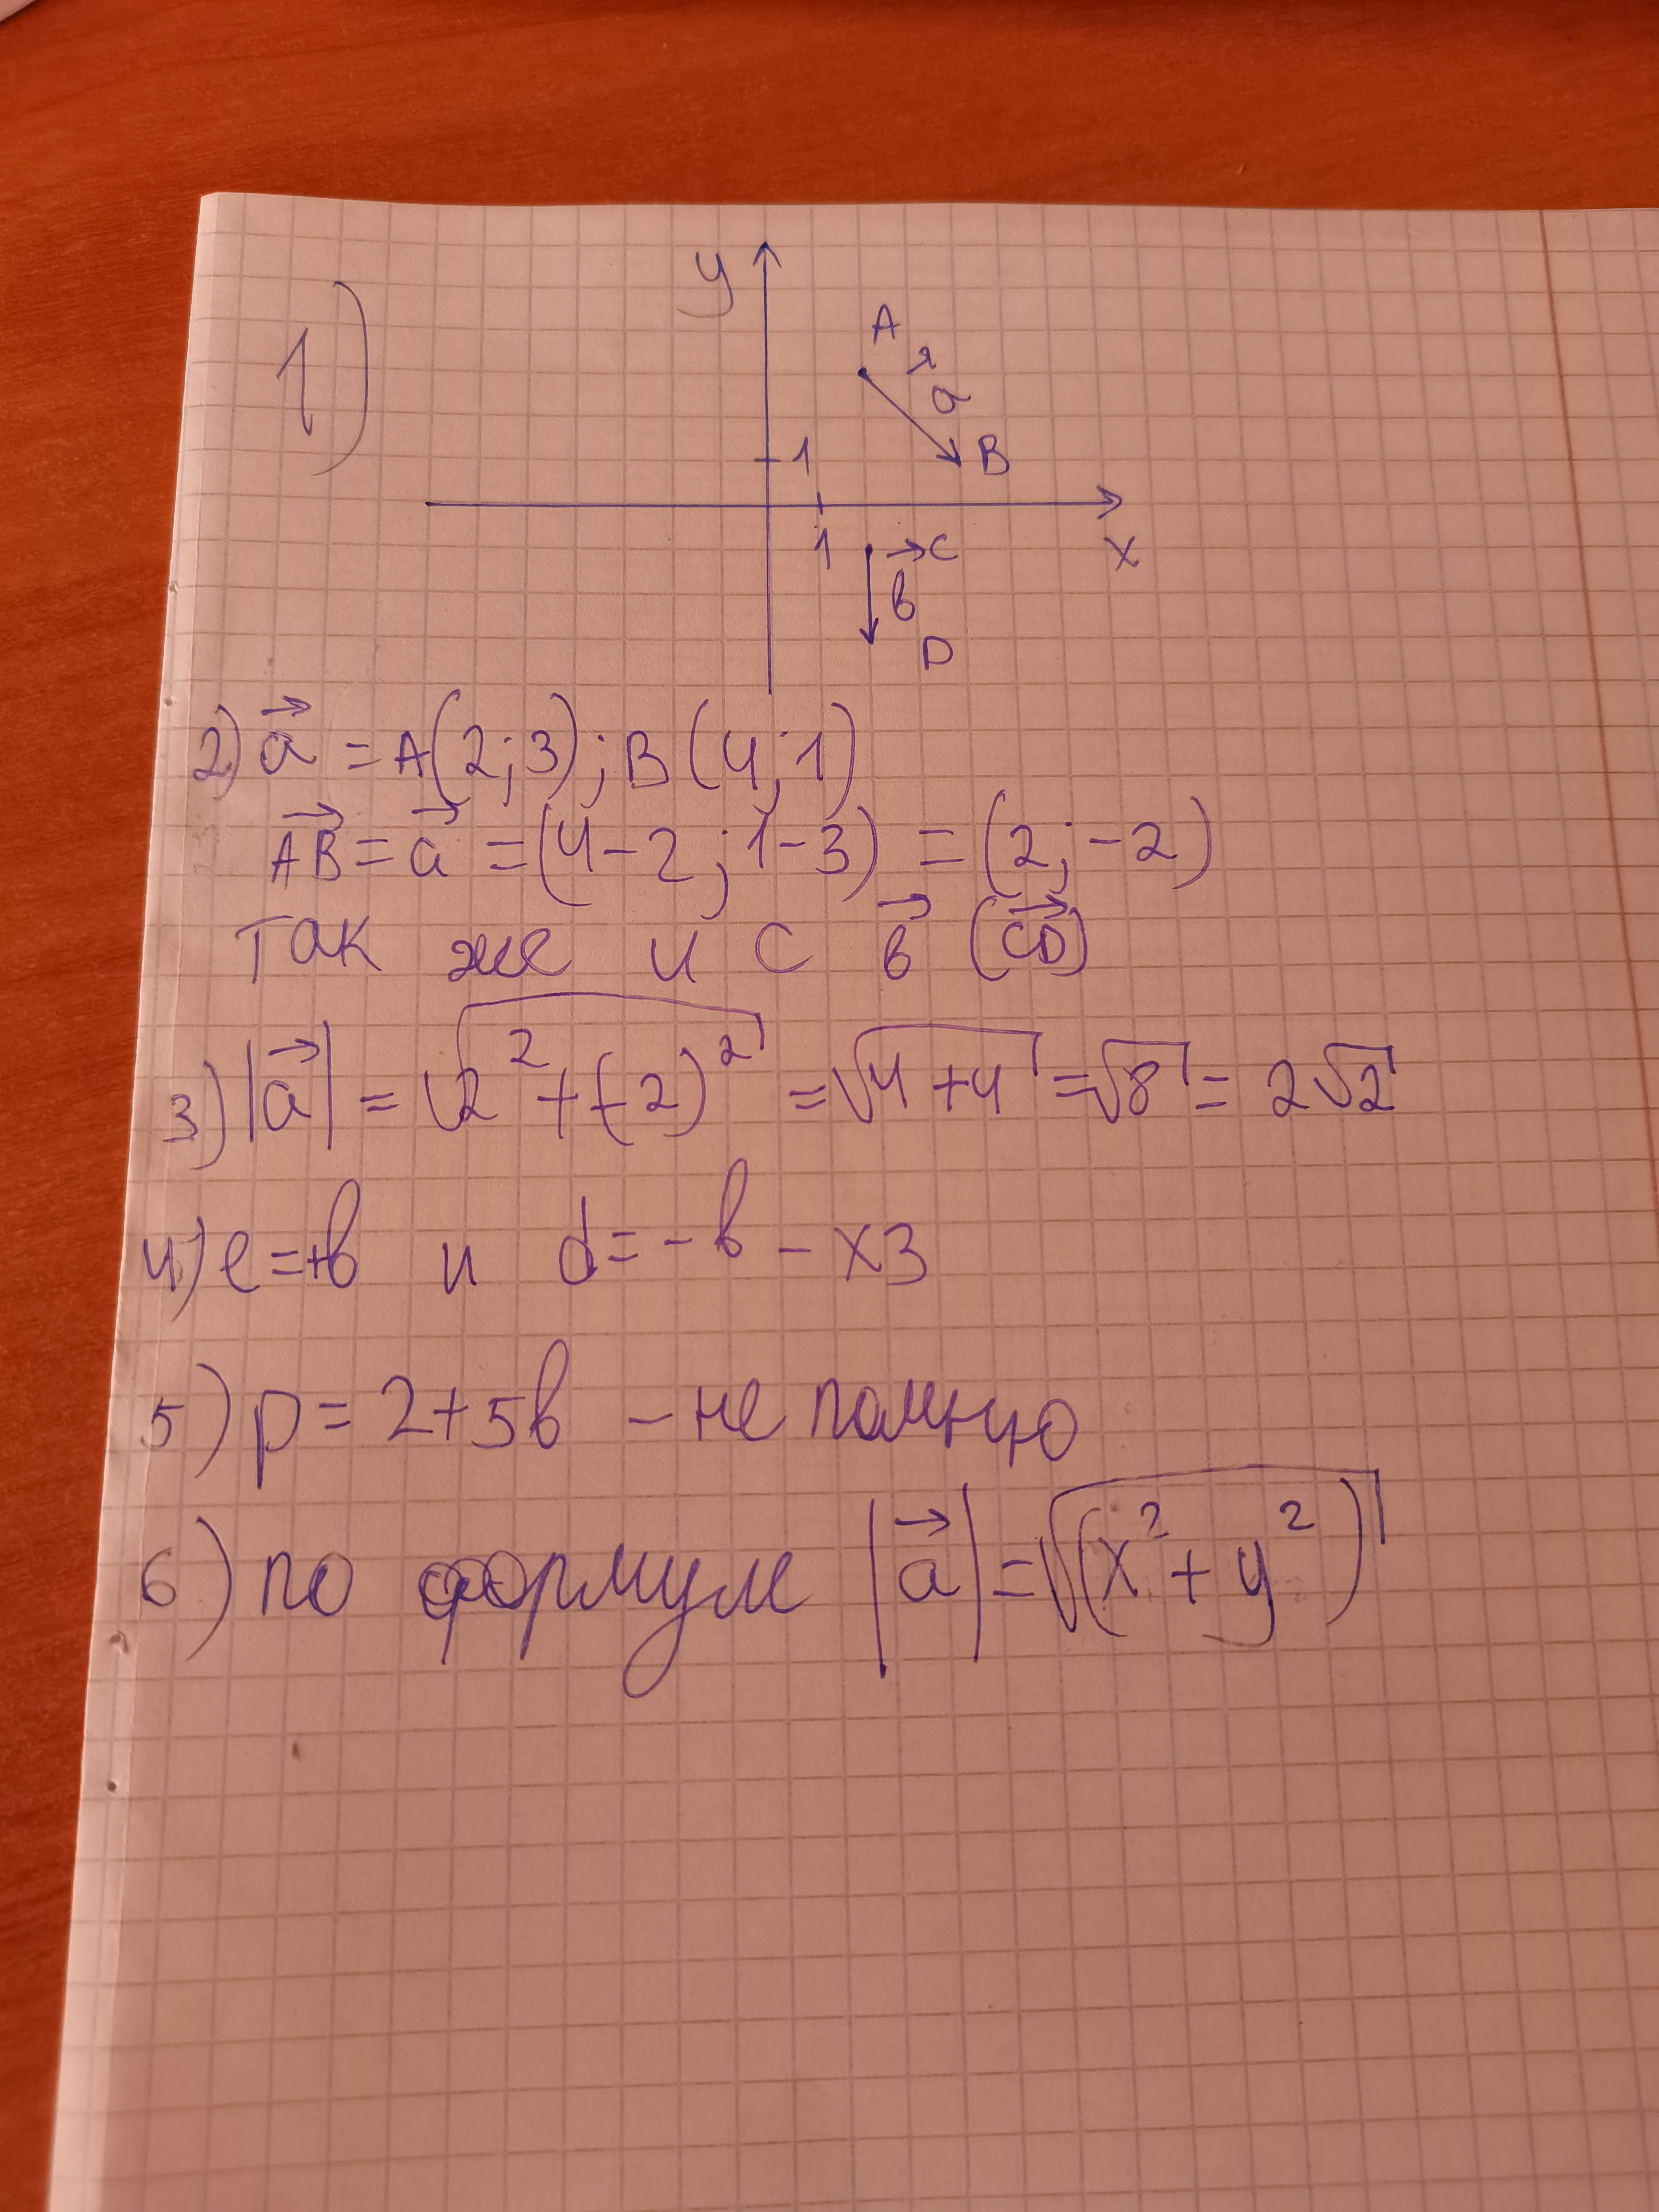 1)
y
A
a
1
B
1
C
x
в
D
2) a = A(2;3); B(4;1)
AB = a = (4-2; 1-3) = (2; -2)
Так же и с в (CD)
3) |a| = √2² + (-2)² = √4+4 = √8 = 2√2
4) e=+в и d=-в - x3
5) p = 2+5в - не помню
6) по формуле |a| = √(x² + y²)